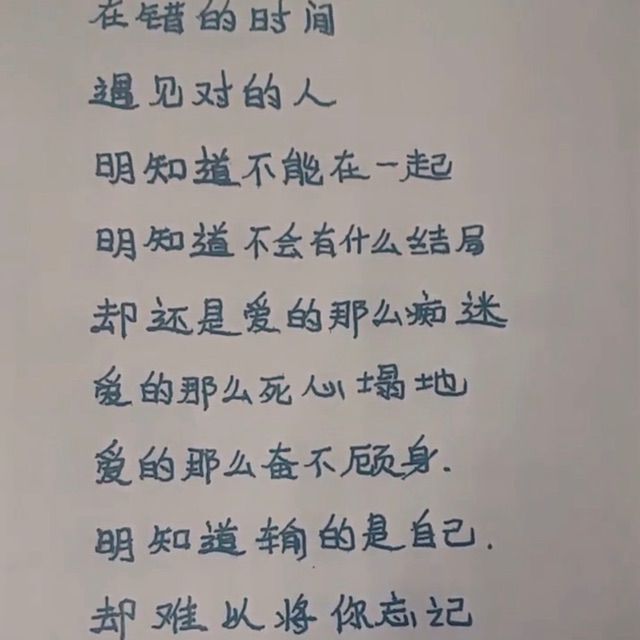 在错的时间
遇见对的人
明知道不能在一起
明知道不会有什么结局
却还是爱的那么痴迷
爱的那么死心塌地
爱的那么奋不顾身.
明知道输的是自己.
却难以将你忘记